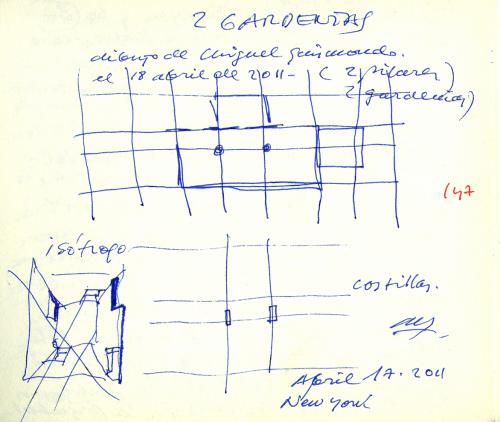 2 GARDENIAS
dibujo de Miguel Raimondo.
el 18 abril del 2011- ( 2 pilares )
2 gardenias)
147
isótropo
costillas.
April 17. 2011
New York